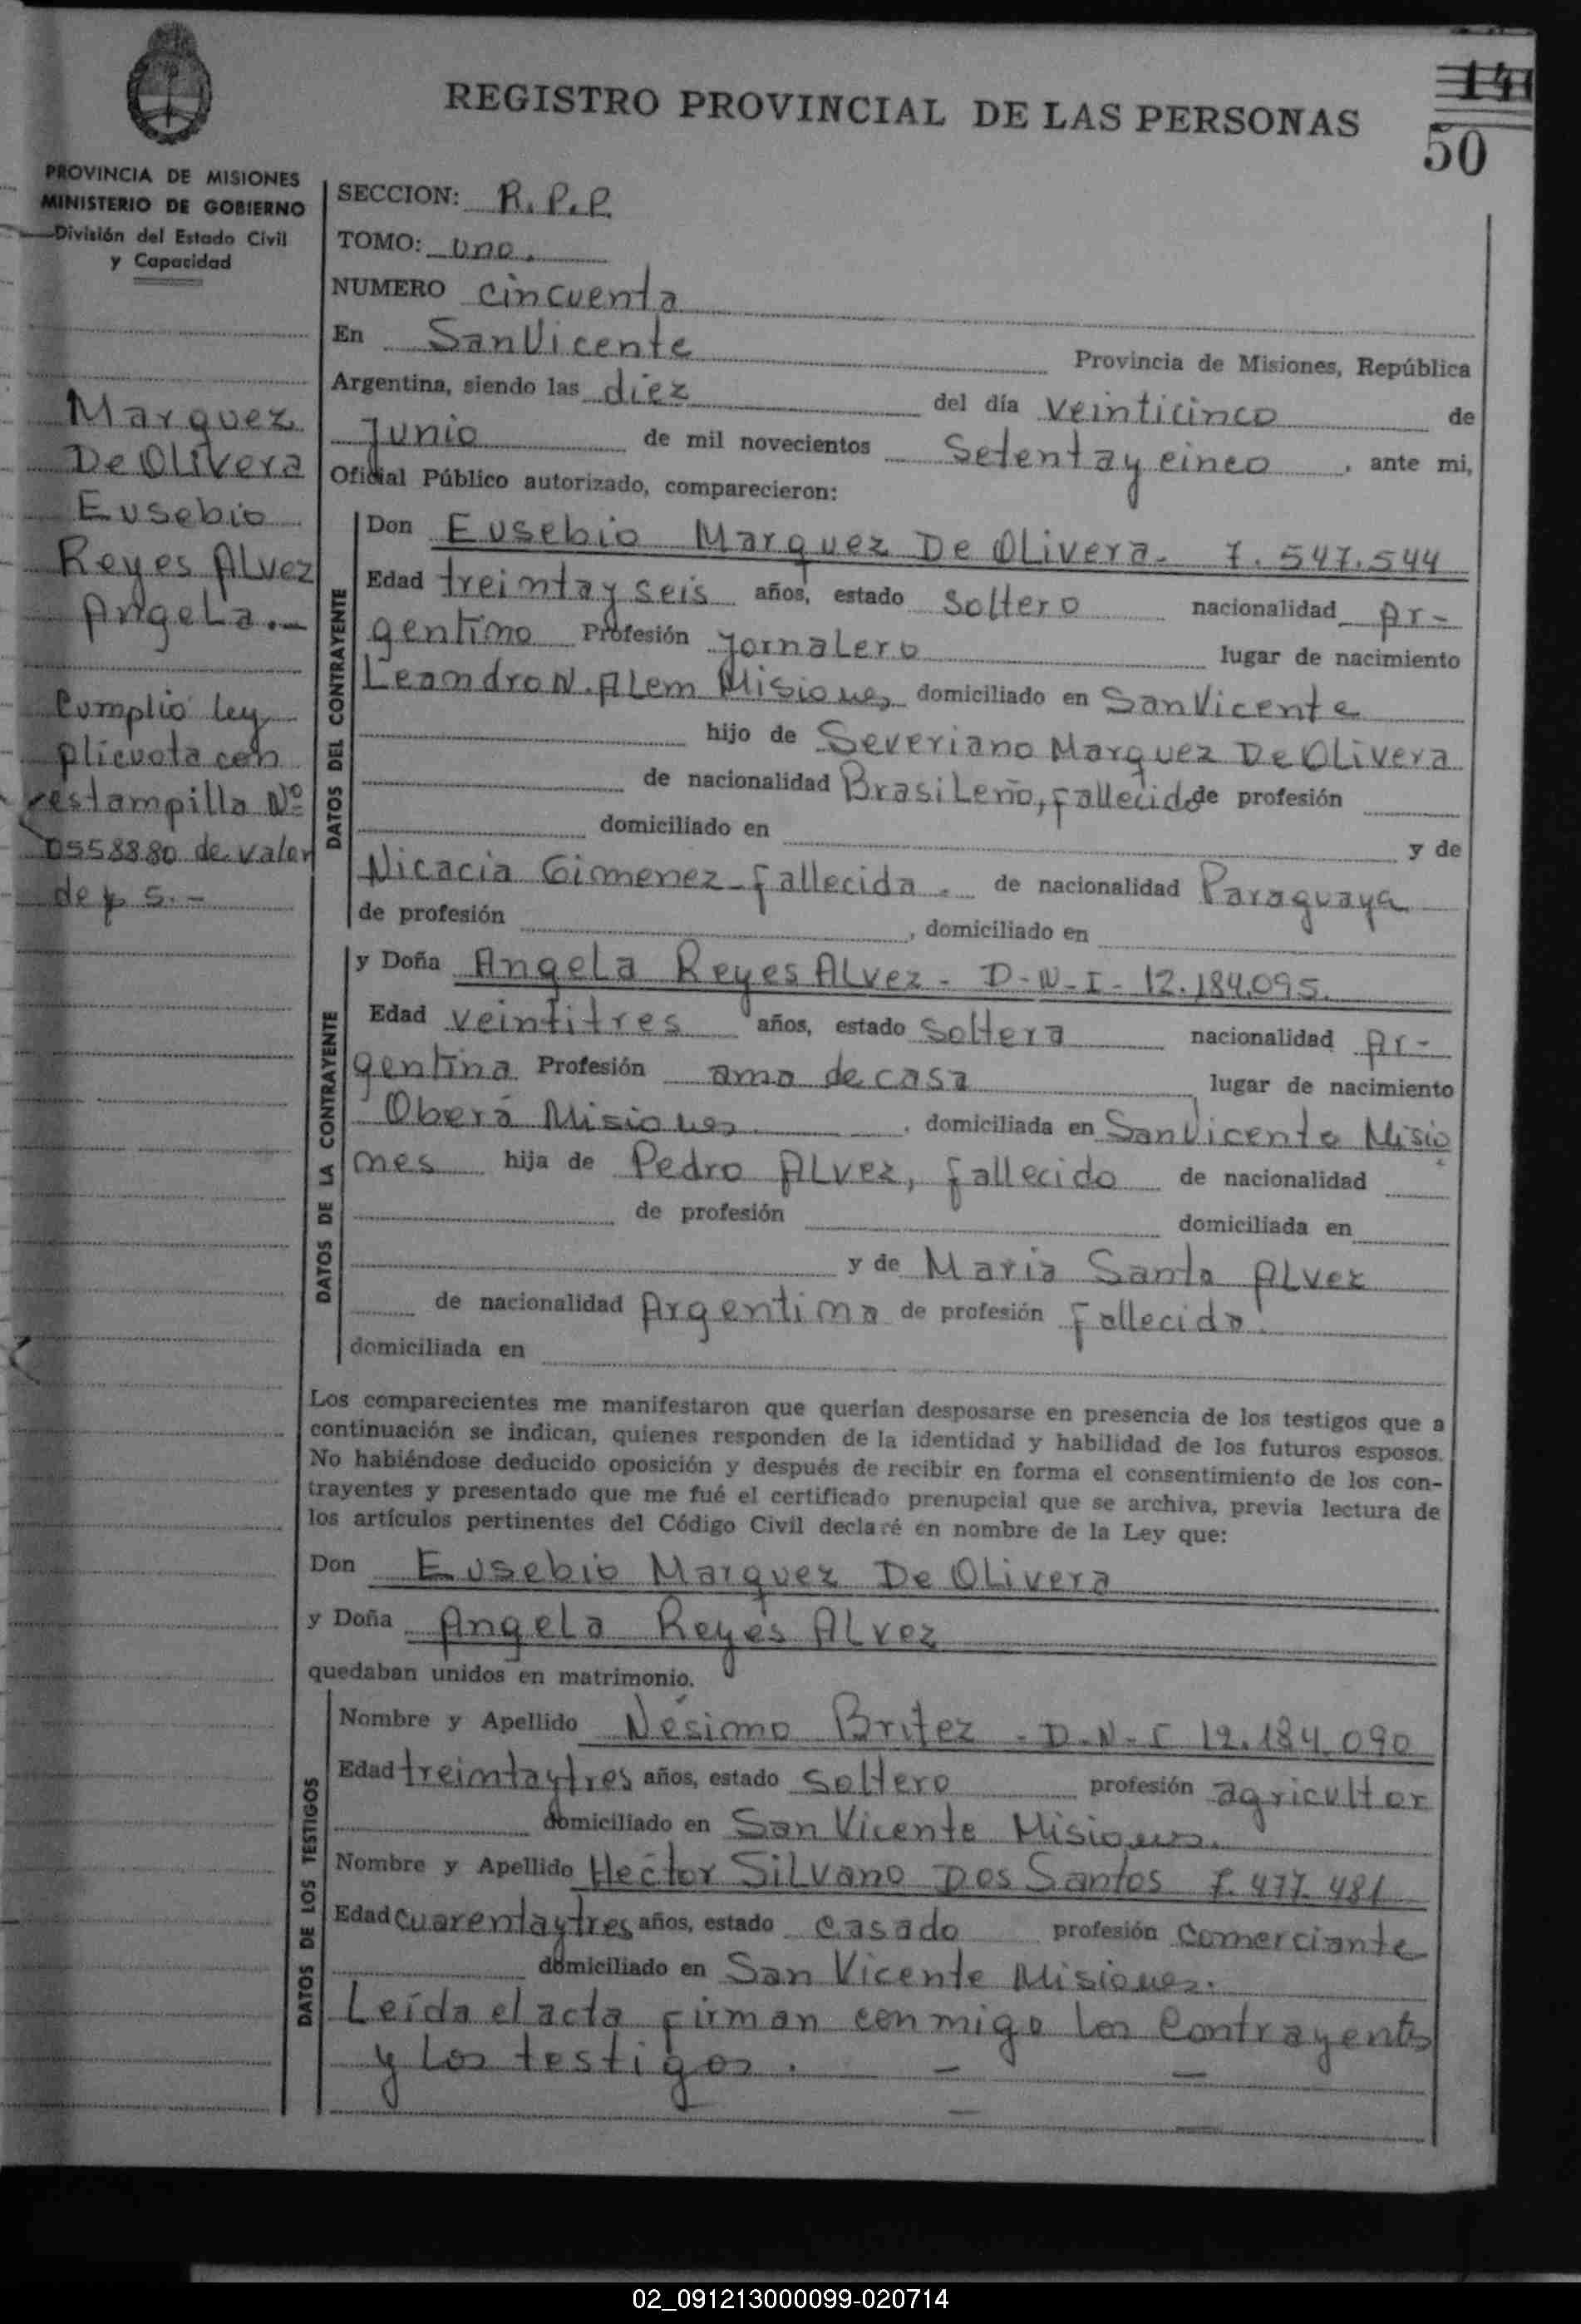 REGISTRO PROVINCIAL DE LAS PERSONAS
141
50
PROVINCIA DE MISIONES
MINISTERIO DE GOBIERNO
División del Estado Civil
y Capacidad
Marquez
De Olivera
Eusebio
Reyes Alvez
Angela.-
Cumplió ley
alicuota con
estampilla Nº
0558880 de valor
de $ 5.-
SECCION: R.P.P.
TOMO: uno.
NUMERO cincuenta
En San Vicente Provincia de Misiones, República
Argentina, siendo las diez del día veinticinco de
Junio de mil novecientos Setentaycinco, ante mi,
Oficial Público autorizado, comparecieron:
DATOS DEL CONTRAYENTE
Don Eusebio Marquez De Olivera- 7.547.544
Edad treintayseis años, estado Soltero nacionalidad Ar-
gentino Profesión Jornalero lugar de nacimiento
Leandro N. Alem Misiones domiciliado en San Vicente
hijo de Severiano Marquez De Olivera
de nacionalidad Brasileño, fallecido de profesión
domiciliado en y de
Nicacia Gimenez-fallecida. de nacionalidad Paraguaya
de profesión , domiciliado en
DATOS DE LA CONTRAYENTE
y Doña Angela Reyes Alvez - D-N-I- 12.184.095.
Edad veintitres años, estado Soltera nacionalidad Ar-
gentina Profesión ama de casa lugar de nacimiento
Oberá Misiones. , domiciliada en San Vicente Misio
nes hija de Pedro Alvez, fallecido de nacionalidad
de profesión domiciliada en
y de Maria Santa Alvez
de nacionalidad Argentina de profesión fallecida.
domiciliada en
Los comparecientes me manifestaron que querían desposarse en presencia de los testigos que a
continuación se indican, quienes responden de la identidad y habilidad de los futuros esposos.
No habiéndose deducido oposición y después de recibir en forma el consentimiento de los con-
trayentes y presentado que me fué el certificado prenupcial que se archiva, previa lectura de
los artículos pertinentes del Código Civil declaré en nombre de la Ley que:
Don Eusebio Marquez De Olivera
y Doña Angela Reyes Alvez
quedaban unidos en matrimonio.
DATOS DE LOS TESTIGOS
Nombre y Apellido Nésimo Britez - D-N-I 12.184.090
Edad treintaytres años, estado Soltero profesión agricultor
domiciliado en San Vicente Misiones.
Nombre y Apellido Hector Silvano Dos Santos 7.477.481
Edad cuarentaytres años, estado casado profesión comerciante
domiciliado en San Vicente Misiones.
Leída el acta firman conmigo los Contrayentes
y los testigos. - -
02_091213000099-020714